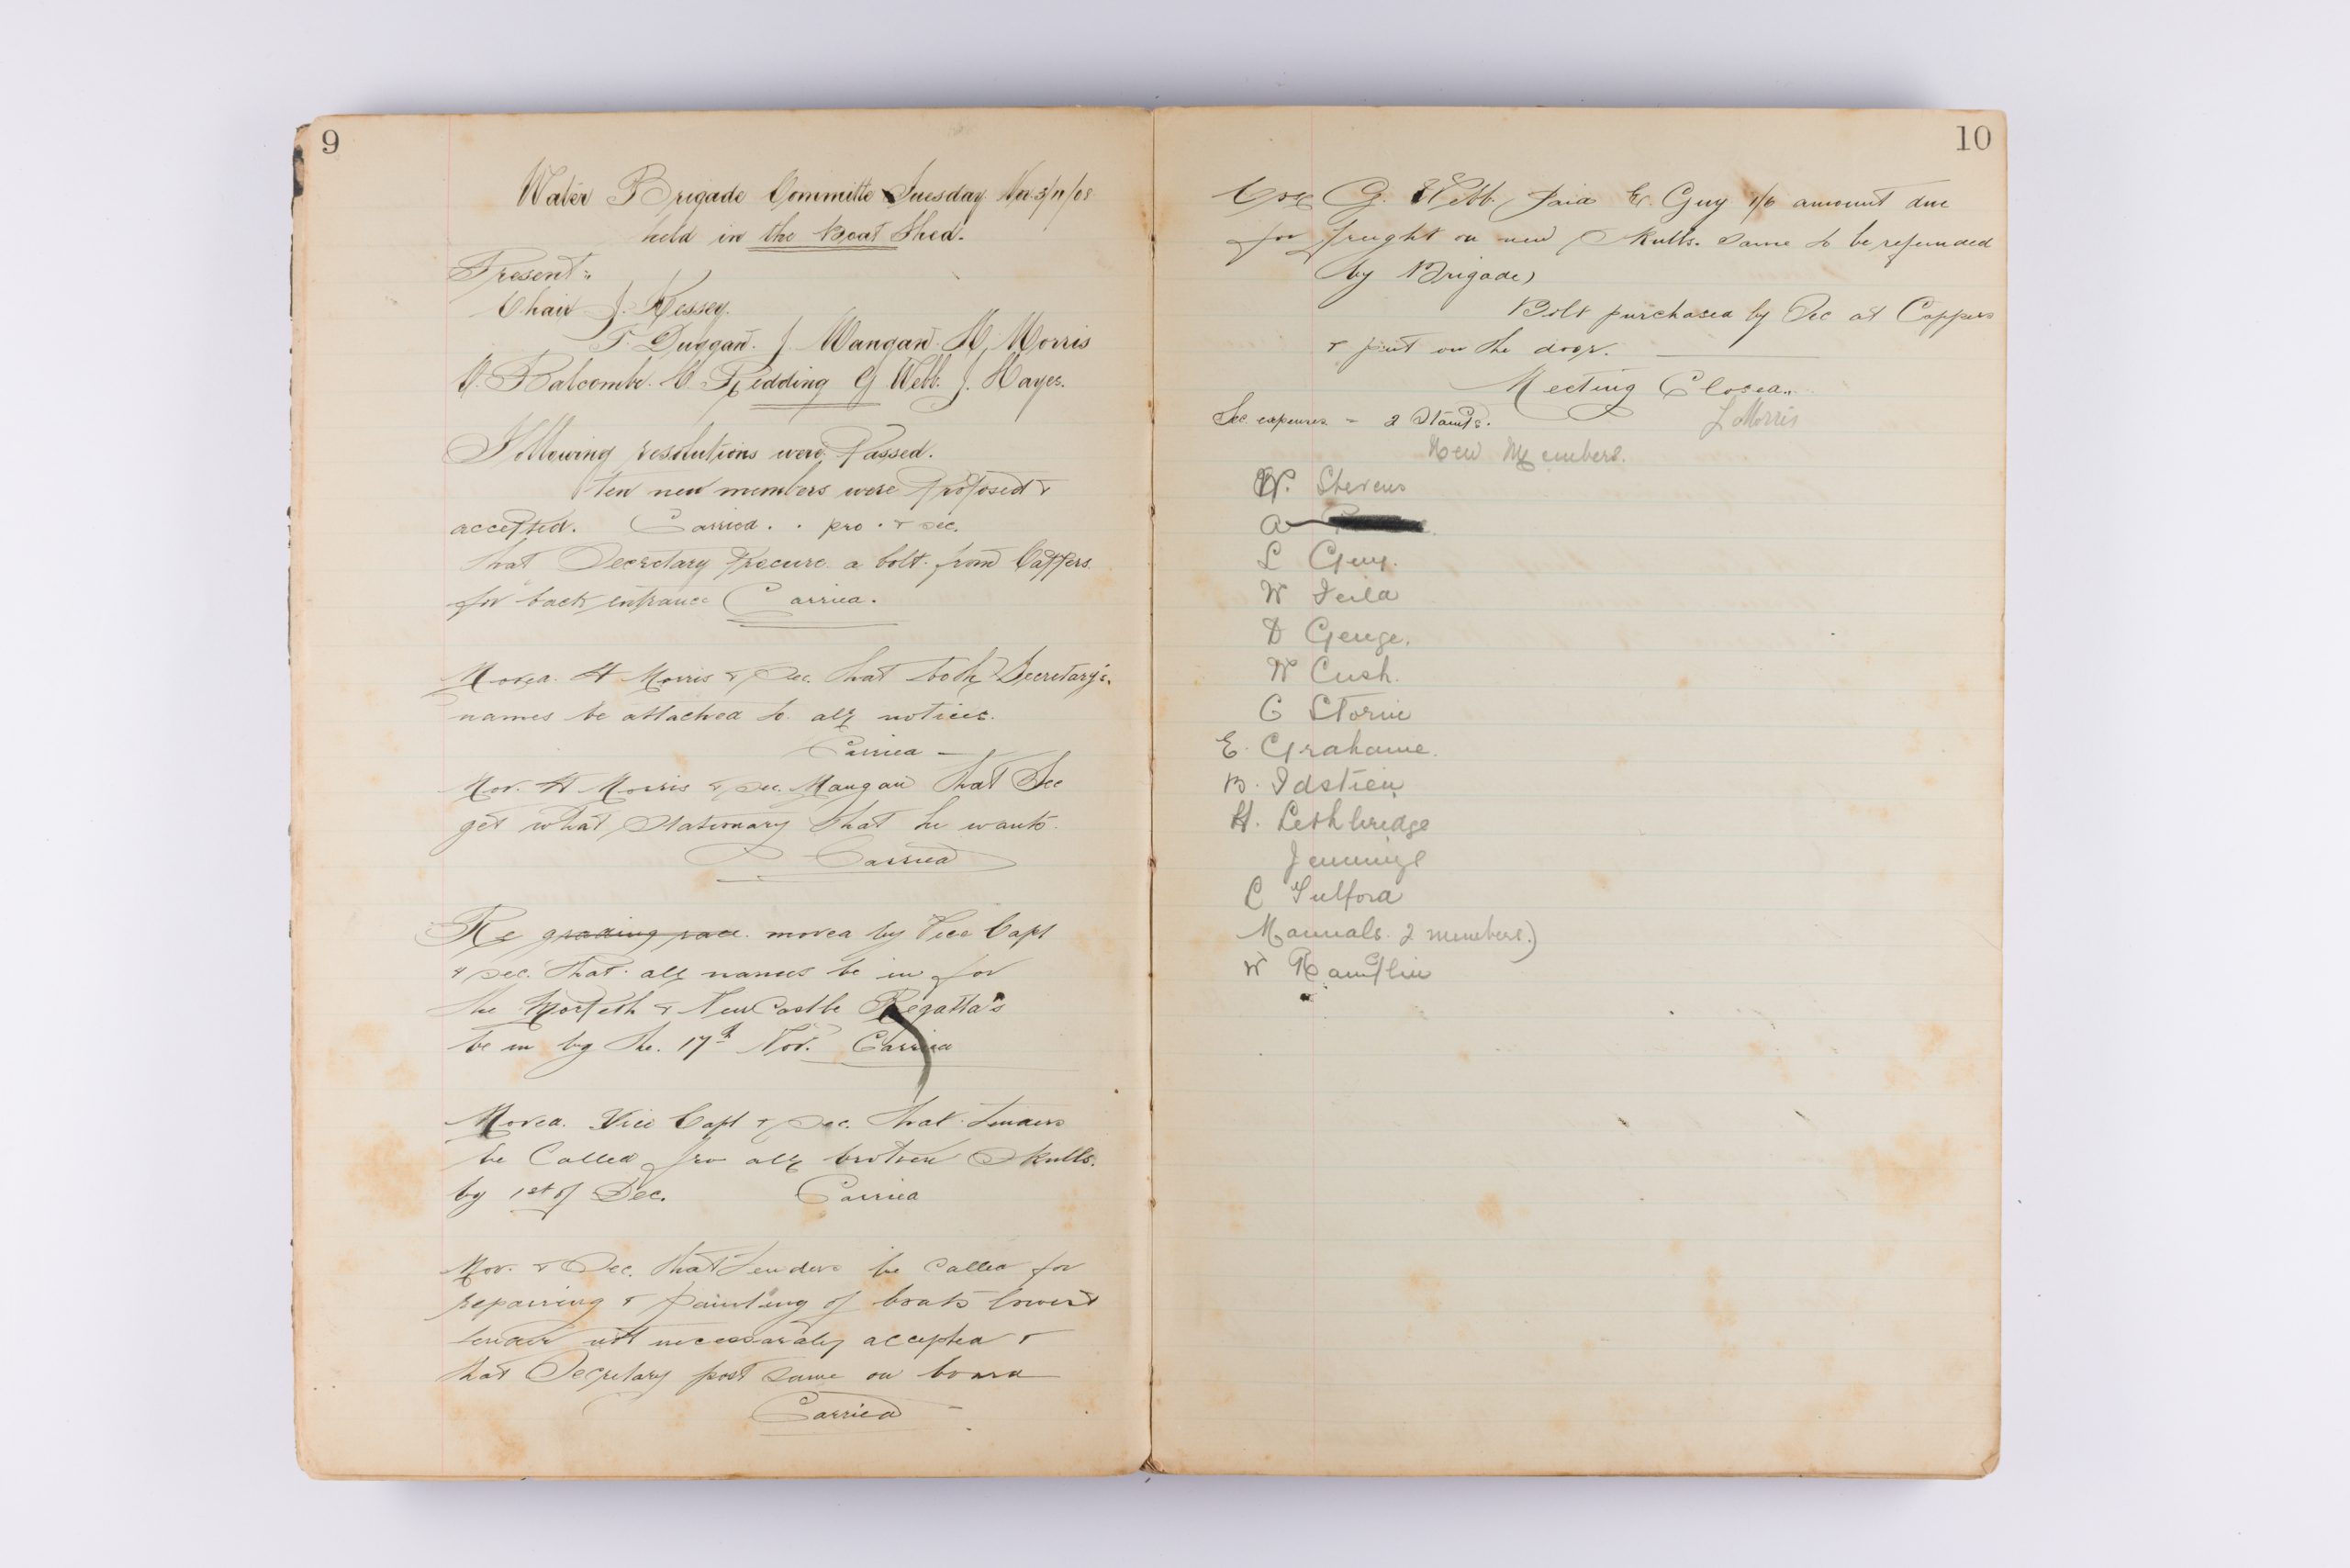 9
Water Brigade Committe Tuesday Nov 3/11/08
held in the Boat Shed.
Present:
Chair J. Kessey.
T Duggan. J. Mangan. H, Morris
Balcombe. C. Redding G Webb. J. Hayes.
Following resolutions were Passed.
ten new members were proposed &
accepted. Carried. . pro. & sec.
that Secretary procure a bolt from Cappers
for back entrance Carried.
Moved. H Morris & Sec. that both Secretary's.
names be attached to all notices.
Carried
Mov. H Morris & Sec. Mangan that Sec
get what Stationary that he wants.
Carried
Re grading race. moved by Vice Capt
& sec. that all names be in for
the Morpeth & NewCastle Regatta's
be in by the. 17th Nov. Carried
Moved. Vice Capt & Sec. that tenders
be Called fro all broken Skulls.
by 1st of Dec. Carried
Mov. & Sec. that tenders be called for
repairing & painting of boats lowest
tender not necessaraly accepted &
that Secretary post same on board
Carried
10
G. Webb. Paid E. Guy 1/6 amount due
for freight on new Skulls. Same to be refunded
by Brigade)
Bolt purchased by Sec at Cappers
& put on the door.
Meeting Closed..
Sec. expenses - 2 Stamps. L Morris
New Members.
W. Stevens
A
L Guy.
W
D Genge.
W Cush.
C Storie
E. Grahame.
B. Idstien
H. Lethbridge
Jennings
C Fulford
Mannals. 2 members.)
W Hamplin